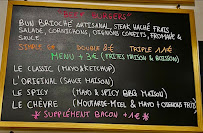 BEEF BURGERS
BUN BRIOCHÉ ARTISANAL, STEAK HACHÉ FRAIS
SALADE, CORNICHONS, OIGNONS CONFITS, FROMAGE &
SAUCE.
SIMPLE 6€ DOUBLE 8€ TRIPLE 11€
MENU + 3€ (FRITES MAISON & BOISSON)
LE CLASSIC (MAYO & KETCHUP)
L'ORIGINAL (SAUCE MAISON)
LE SPICY (MAYO & SPICY BBQ MAISON)
LE CHÈVRE (MOUTARDE-MIEL & MAYO + OIGNONS FRITS)
* SUPPLÉMENT BACON +1€ *